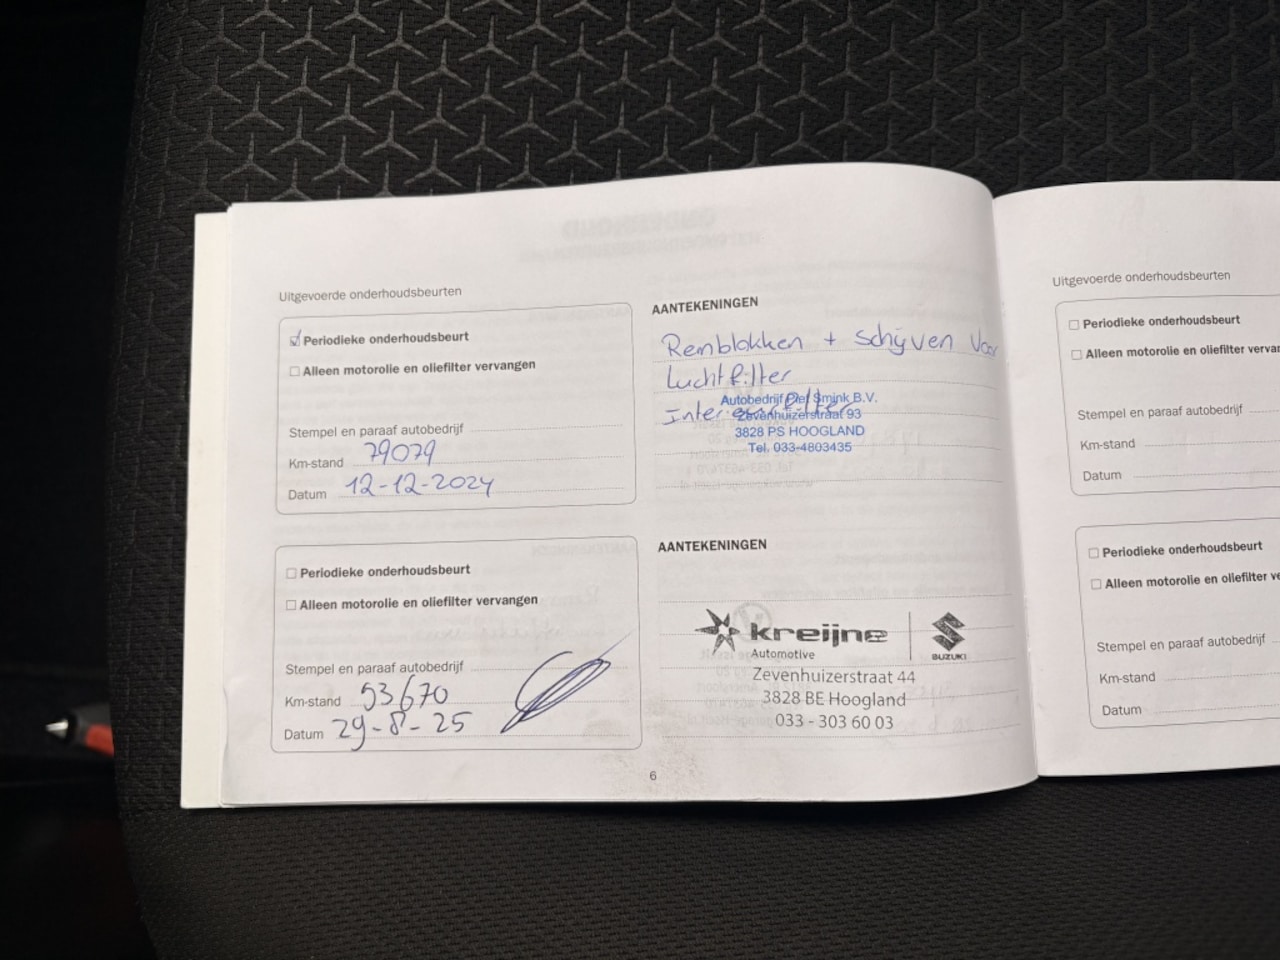 Uitgevoerde onderhoudsbeurten
Periodieke onderhoudsbeurt
Alleen motorolie en oliefilter vervangen
Stempel en paraaf autobedrijf
Km-stand 79079
Datum 12-12-2024
AANTEKENINGEN
Remblokken + schijven voor
Luchtfilter
Interieurfilter
Autobedrijf Piet Smink B.V.
Zevenhuizerstraat 93
3828 PS HOOGLAND
Tel. 033-4803435
Periodieke onderhoudsbeurt
Alleen motorolie en oliefilter vervangen
Stempel en paraaf autobedrijf
Km-stand 93670
Datum 29-8-25
AANTEKENINGEN
kreijne
Automotive
SUZUKI
Zevenhuizerstraat 44
3828 BE Hoogland
033 - 303 60 03
6
Uitgevoerde onderhoudsbeurten
Periodieke onderhoudsbeurt
Alleen motorolie en oliefilter
Stempel en paraaf autobedrijf
Km-stand
Datum
Periodieke onderhoudsbeurt
Alleen motorolie en oliefilter
Stempel en paraaf autobedrijf
Km-stand
Datum